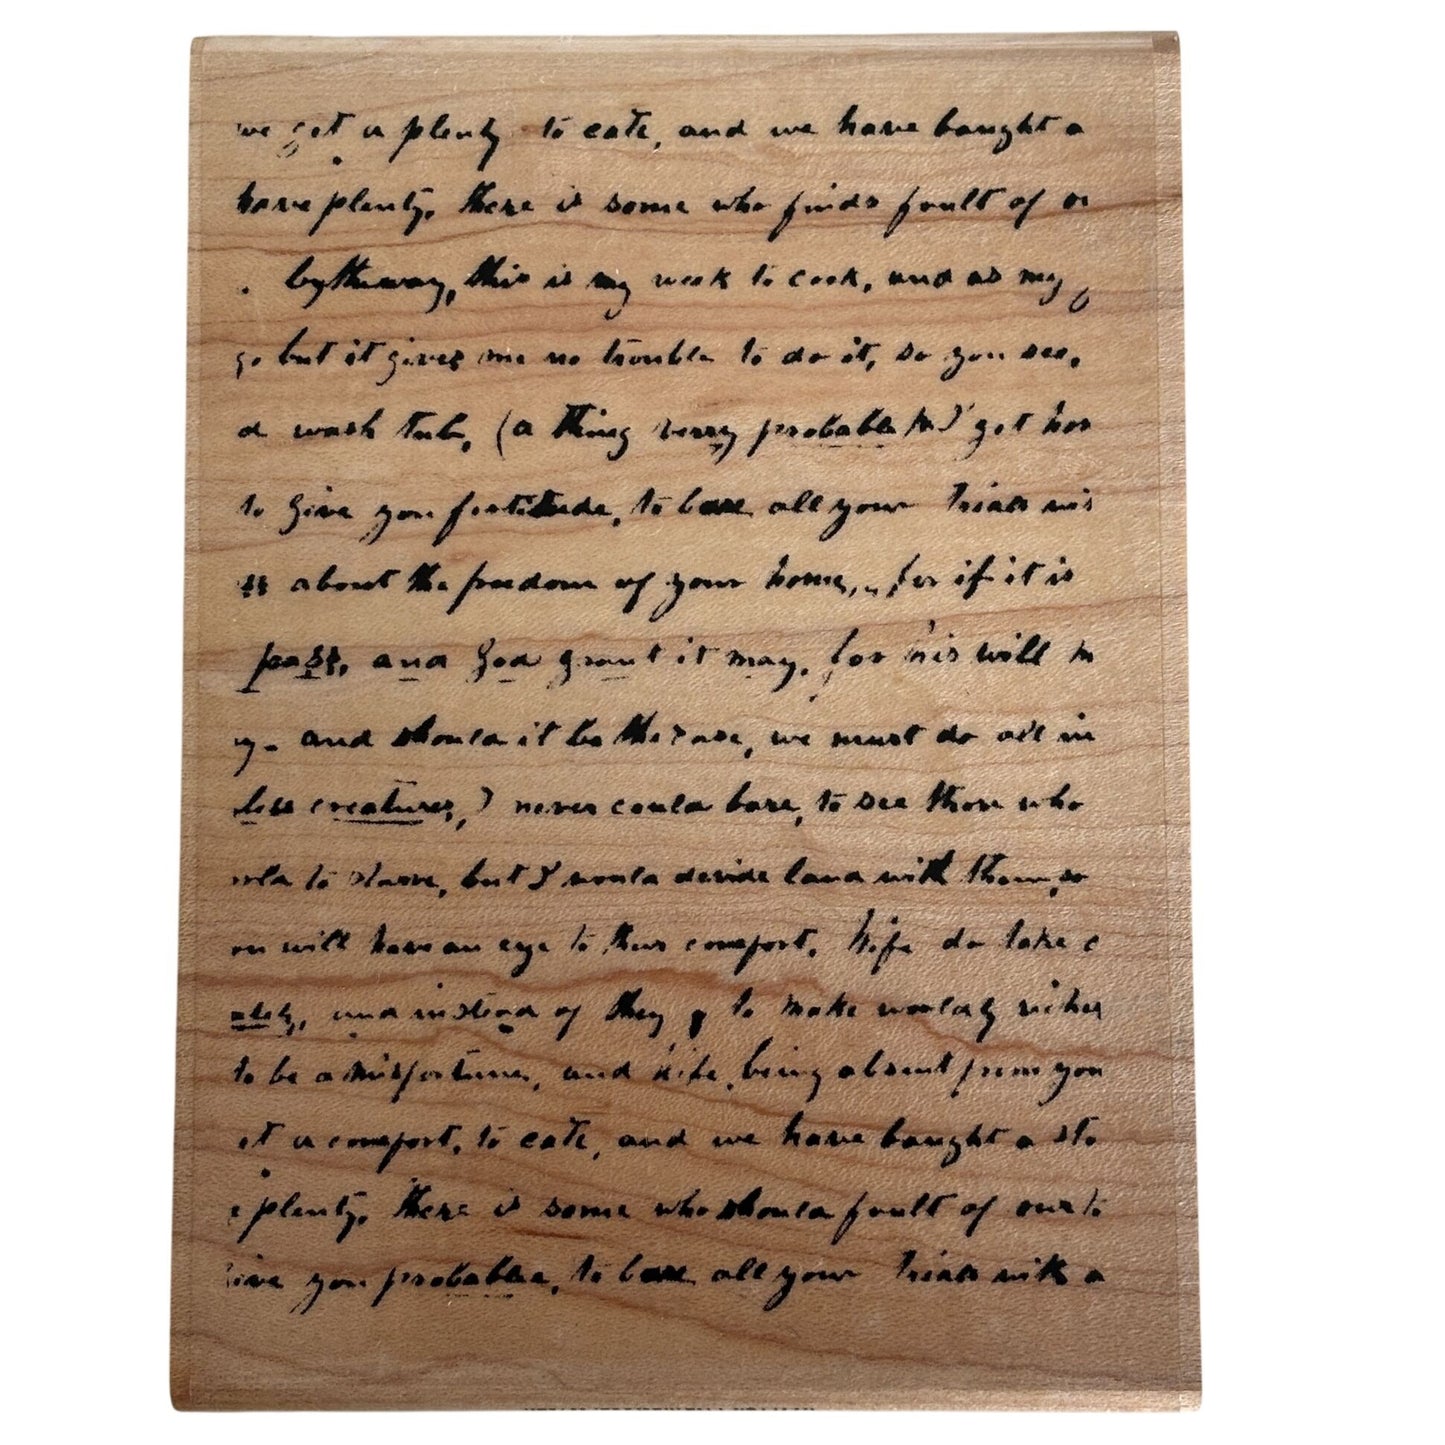 we get a plenty to eate, and we have bought a
have plenty, there is some who finds fault of o
by the way, this is my week to cook, and as my
go but it gives me no trouble to do it, so you see,
d wash tub, (a thing verry probable) get hom
to give you fortitude, to bare all your trials wi
ss about the freedom of your home, for if it is
pass, and God grant it may, for his will
y. and should it be the case, we must do all in
less creatures, I never could bare, to see those who
orld to starve, but I would devide land with them, so
ou will have an eye to their comfort. Wife do take c
ately, and instead of they to make worldly riches
to be a misfortune, and Wife, being absent from you
et a comfort, to eate, and we have bought a sto
e plenty, there is some who should fault of our
give you probable, to bare all your trials with a